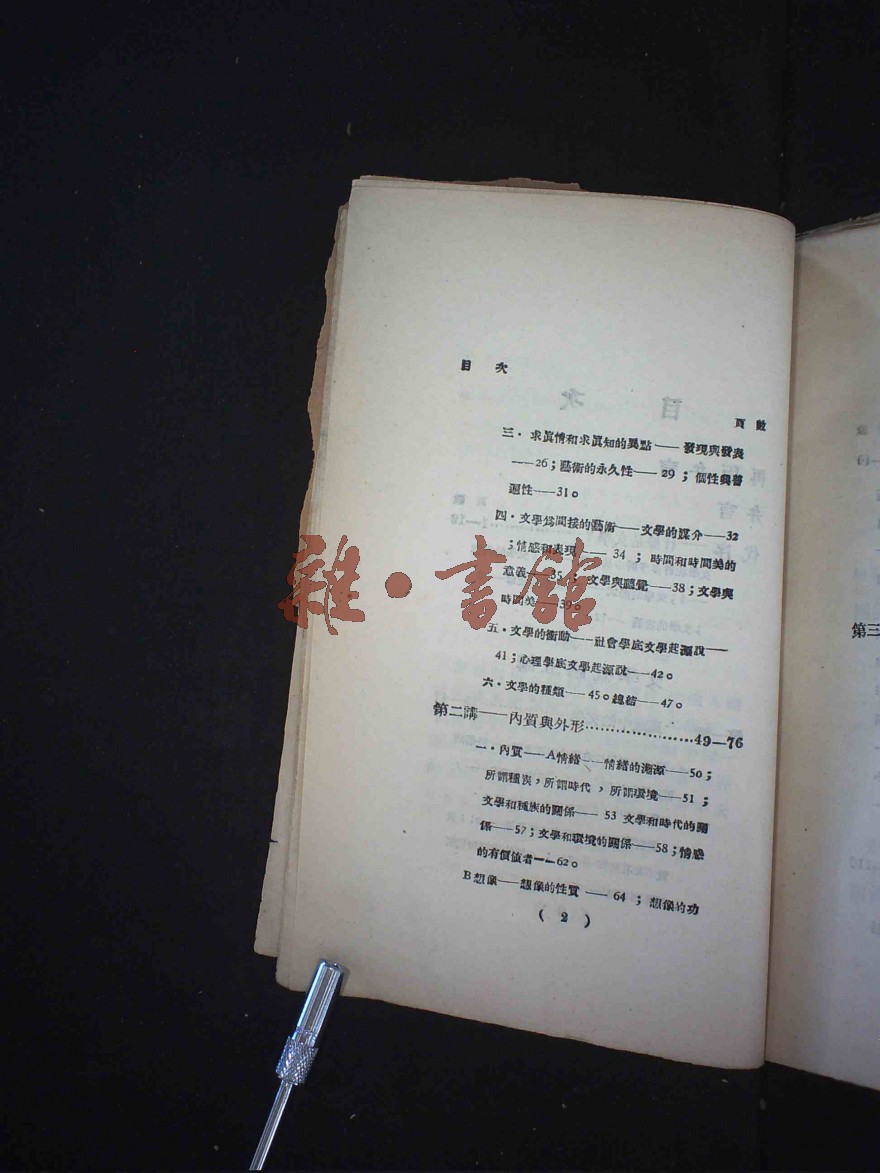 目 次
頁 數
三・求眞情和求眞知的異點——發現與發表
——26；藝術的永久性——29；個性與普
遍性——31。
四・文學爲間接的藝術——文學的媒介——32
；情感和表現——34；時間和時間美的
意義——35；文學與聽覺——38；文學與
時間美——39。
五・文學的衝動——社會學底文學起源說——
41；心理學底文學起源說——42。
六・文學的種類——45。總結——47。
第二講——內質與外形…………………49—76
一・內質——A情緒——情緒的溯源——50；
所謂種族，所謂時代，所謂環境——51；
文學和種族的關係——53 文學和時代的關
係——57；文學和環境的關係——58；情感
的有價值者——62。
B想像——想像的性質——64；想像的功
( 2 )
第三
雜・書館